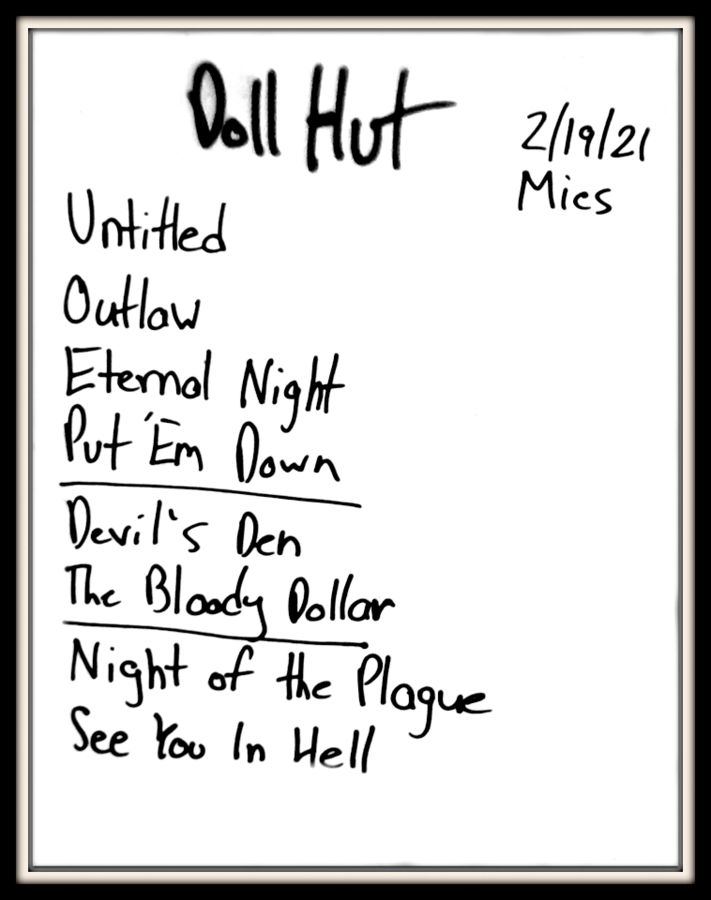 Doll Hut
2/19/21
Mics
Untitled
Outlaw
Eternal Night
Put 'Em Down
Devil's Den
The Bloody Dollar
Night of the Plague
See You In Hell